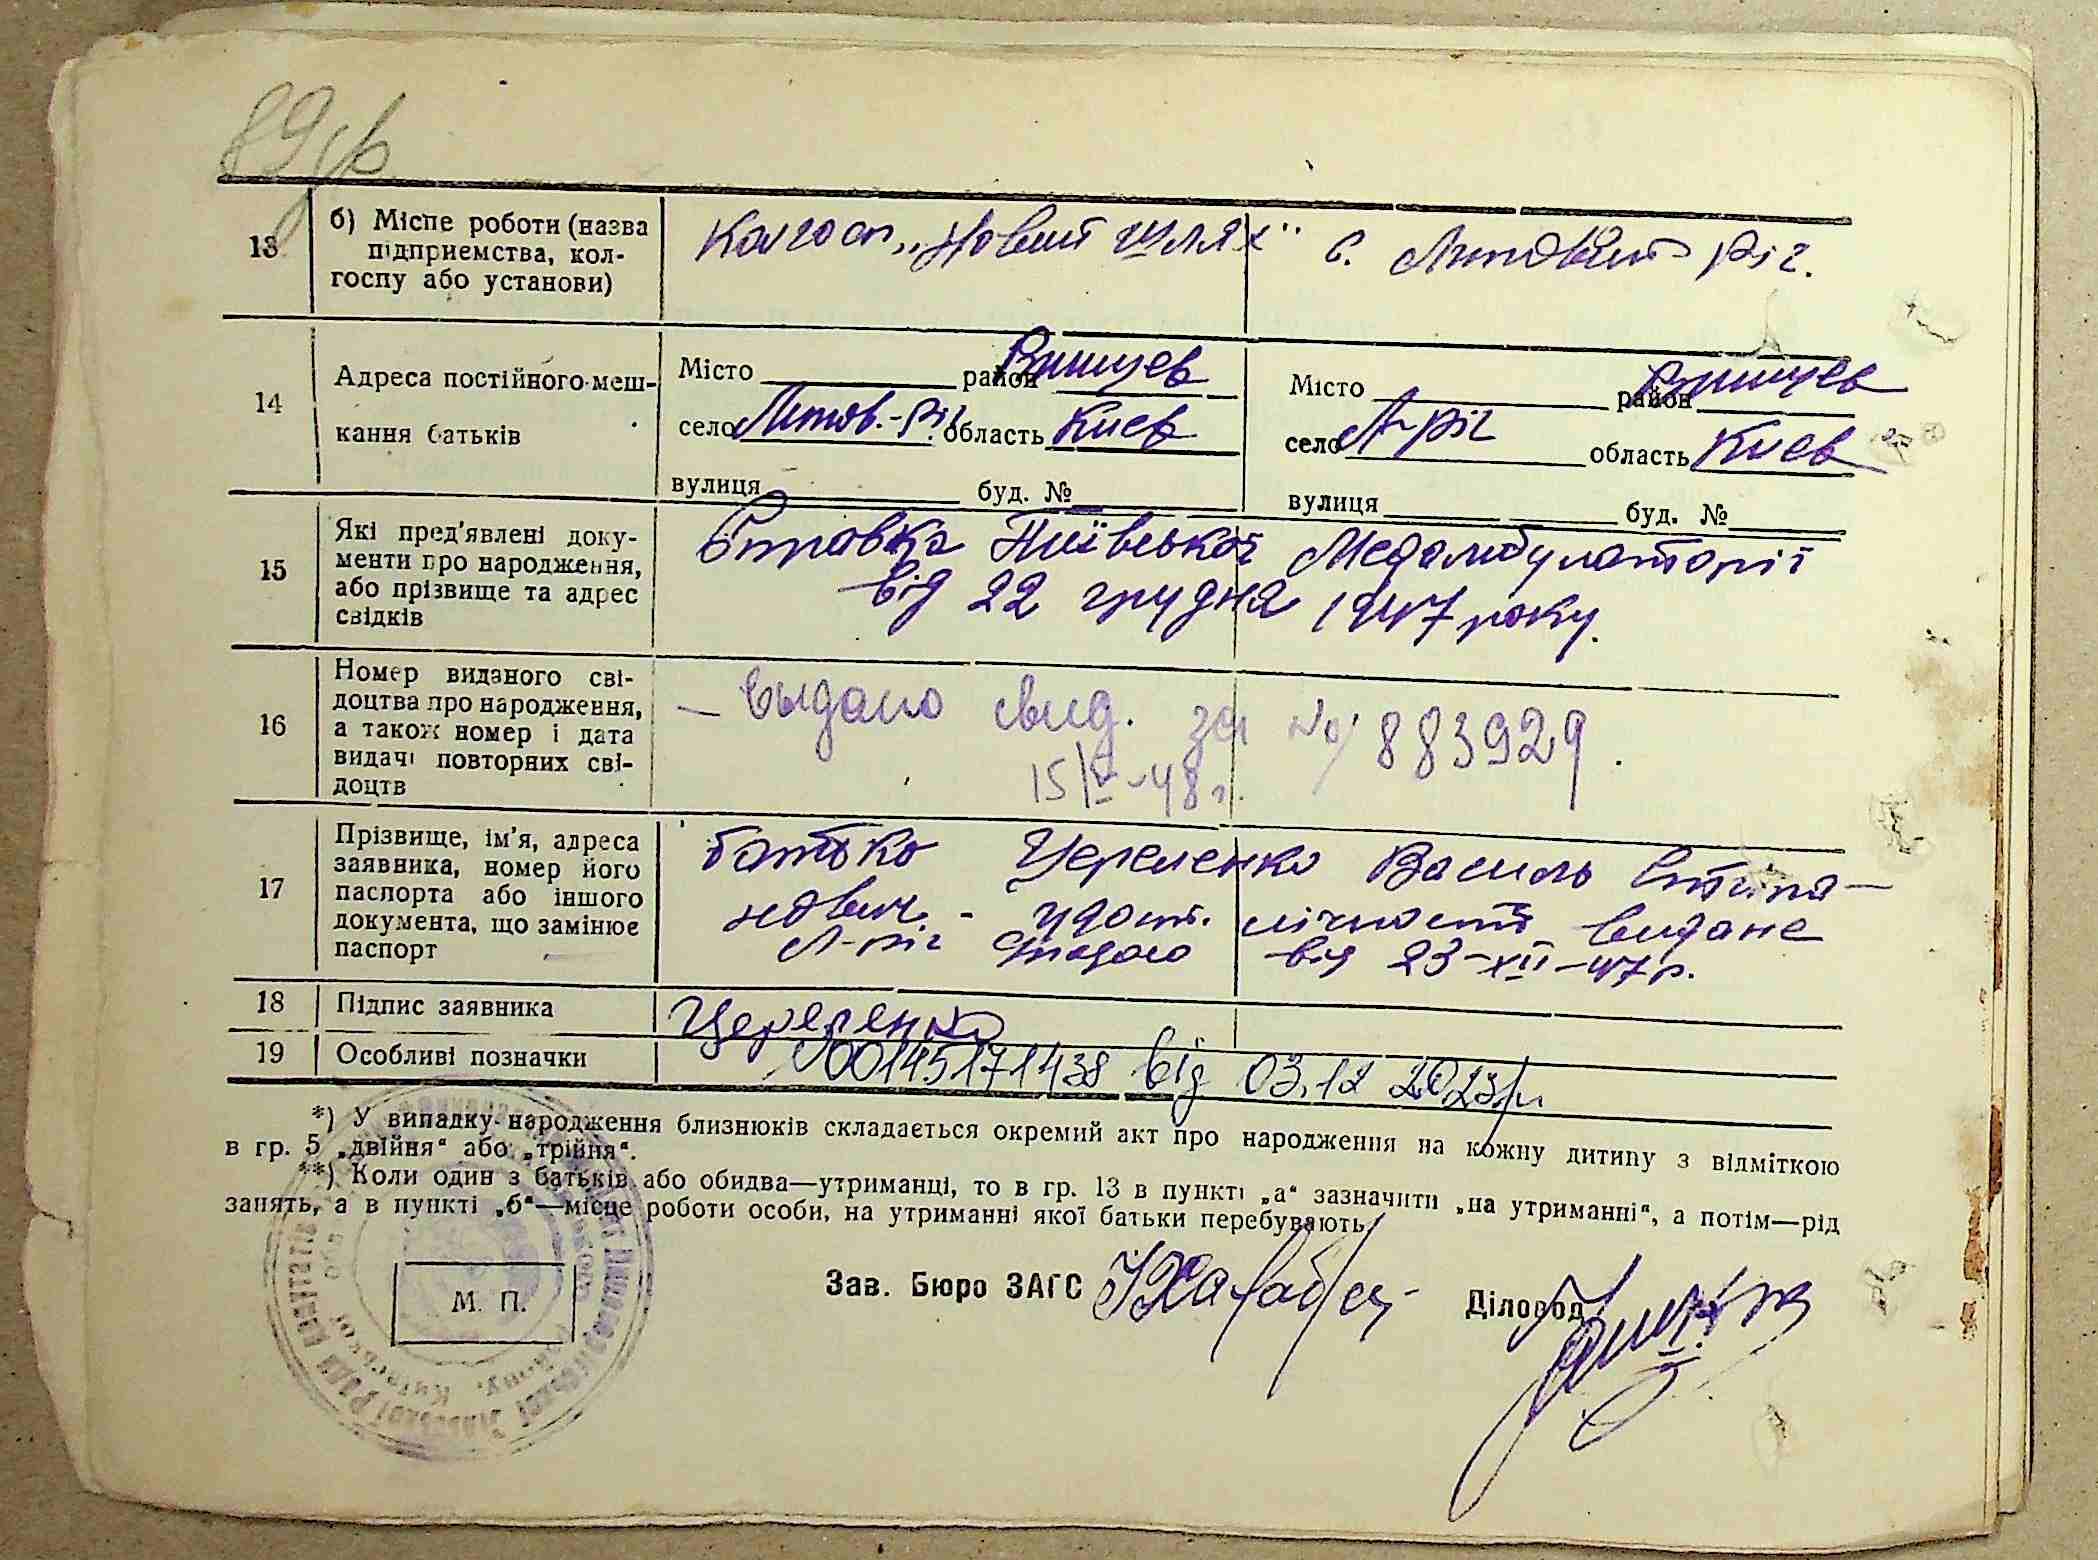 89 др
13
б) Місце роботи (назва
підприємства, кол-
госпу або установи)
Колгосп „Новий шлях" с. Литовит- ріг.
14
Адреса постійного меш-
кання батьків
Місто район
село Литов.-ріг область Киев
вулиця буд. №
Місто район
село Л-ріг область Киев
вулиця буд. №
15
Які пред'явлені доку-
менти про народження,
або прізвище та адрес
свідків
Справка Медамбулаторії
від 22 грудня 1947 року.
16
Номер виданого сві-
доцтва про народження,
а також номер і дата
видачі повторних сві-
доцтв
— выдано свид. за № 883929.
15/V-48 г.
17
Прізвище, ім'я, адреса
заявника, номер його
паспорта або іншого
документа, що замінює
паспорт
батько Василь Степа-
нович - удост. лічності видане
Л-ріг від 23-XII-47р.
18
Підпис заявника
19
Особливі позначки
00145171438 від 03.12 2023р
*) У випадку народження близнюків складається окремий акт про народження на кожну дитину з відміткою
в гр. 5 „двійня“ або „трійня“.
**) Коли один з батьків або обидва—утриманці, то в гр. 13 в пункті „а“ зазначити „на утриманні“, а потім—рід
занять, а в пункті „б“—місце роботи особи, на утриманні якої батьки перебувають
Зав. Бюро ЗАГС
Діловод
М. П.